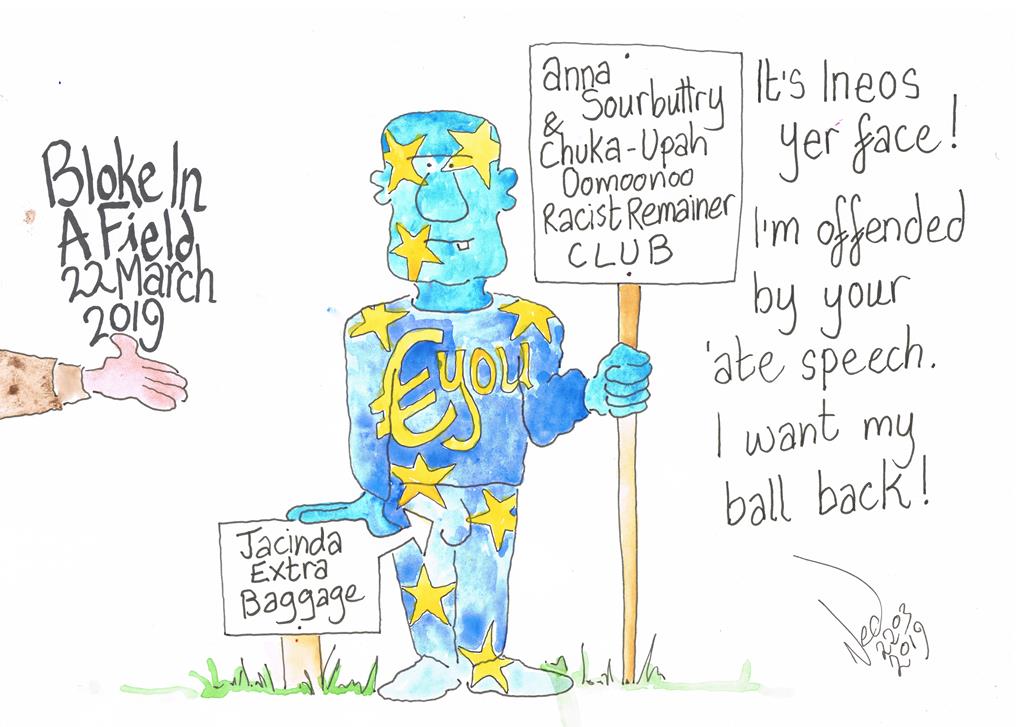 Bloke In
A Field
22 March
2019
anna
Sourbuttry
&
Chuka-Upah
Oomoonoo
Racist Remainer
CLUB
It's Ineos
yer face!
I'm offended
by your
'ate speech.
I want my
ball back!
€you
Jacinda
Extra
Baggage
2203
2019